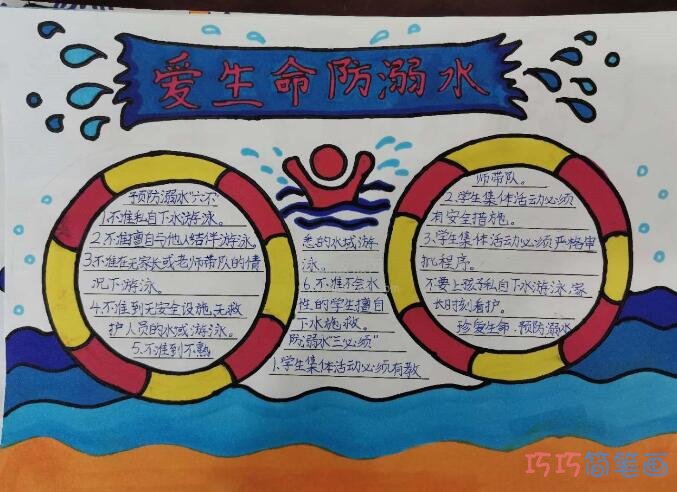 爱生命防溺水
预防溺水"六不
1.不准私自下水游泳。
2.不准擅自与他人结伴游泳。
3.不准在无家长或老师带队的情
况下游泳。
4.不准到无安全设施、无救
护人员的水域游泳。
5.不准到不熟
悉的水域游
泳。
6.不准不会水
性的学生擅自
下水施救。
防溺水"三必须"
1.学生集体活动必须有教
师带队。
2.学生集体活动必须
有安全措施。
3.学生集体活动必须严格审
批程序。
不要上孩子私自下水游泳,家
长时刻看护。
珍爱生命·预防溺水
巧巧简笔画